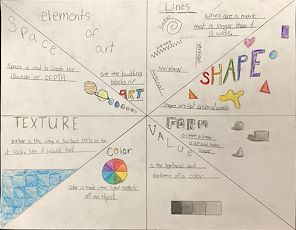 elements
of
art
Space
Space is used to create the
illusion of DEPTH
are the building
blocks of
ART
Lines
Lines are a mark
that is longer than it
is wide.
SHAPE
Shapes are flat enclosed areas
TEXTURE
texture is the way a surface feels or how
it looks like it would feel
Color
Color is made when light reflects
off an object
VALUE
is the lightness and
darkness of a color
FORM